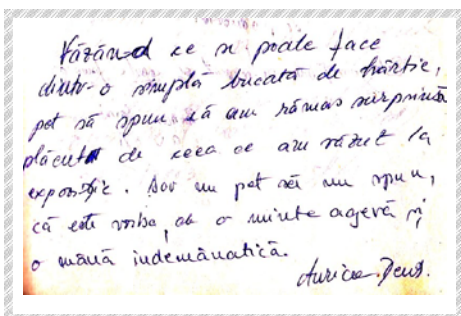 Văzând ce se poate face
dintr-o simplă bucată de hârtie,
pot să spun că am rămas surprinsă
plăcut de ceea ce am văzut la
expoziție. Dar nu pot să nu spun,
că este vorba de o minte ageră și
o mână indemânatică.
Aurica